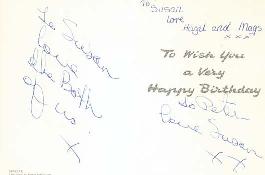 To Susan
love
the Both
of us!
X
To
Susan
love
Nigel and Mags
x x x
To Wish You
a Very
Happy Birthday
To Peter
love Susan
X X